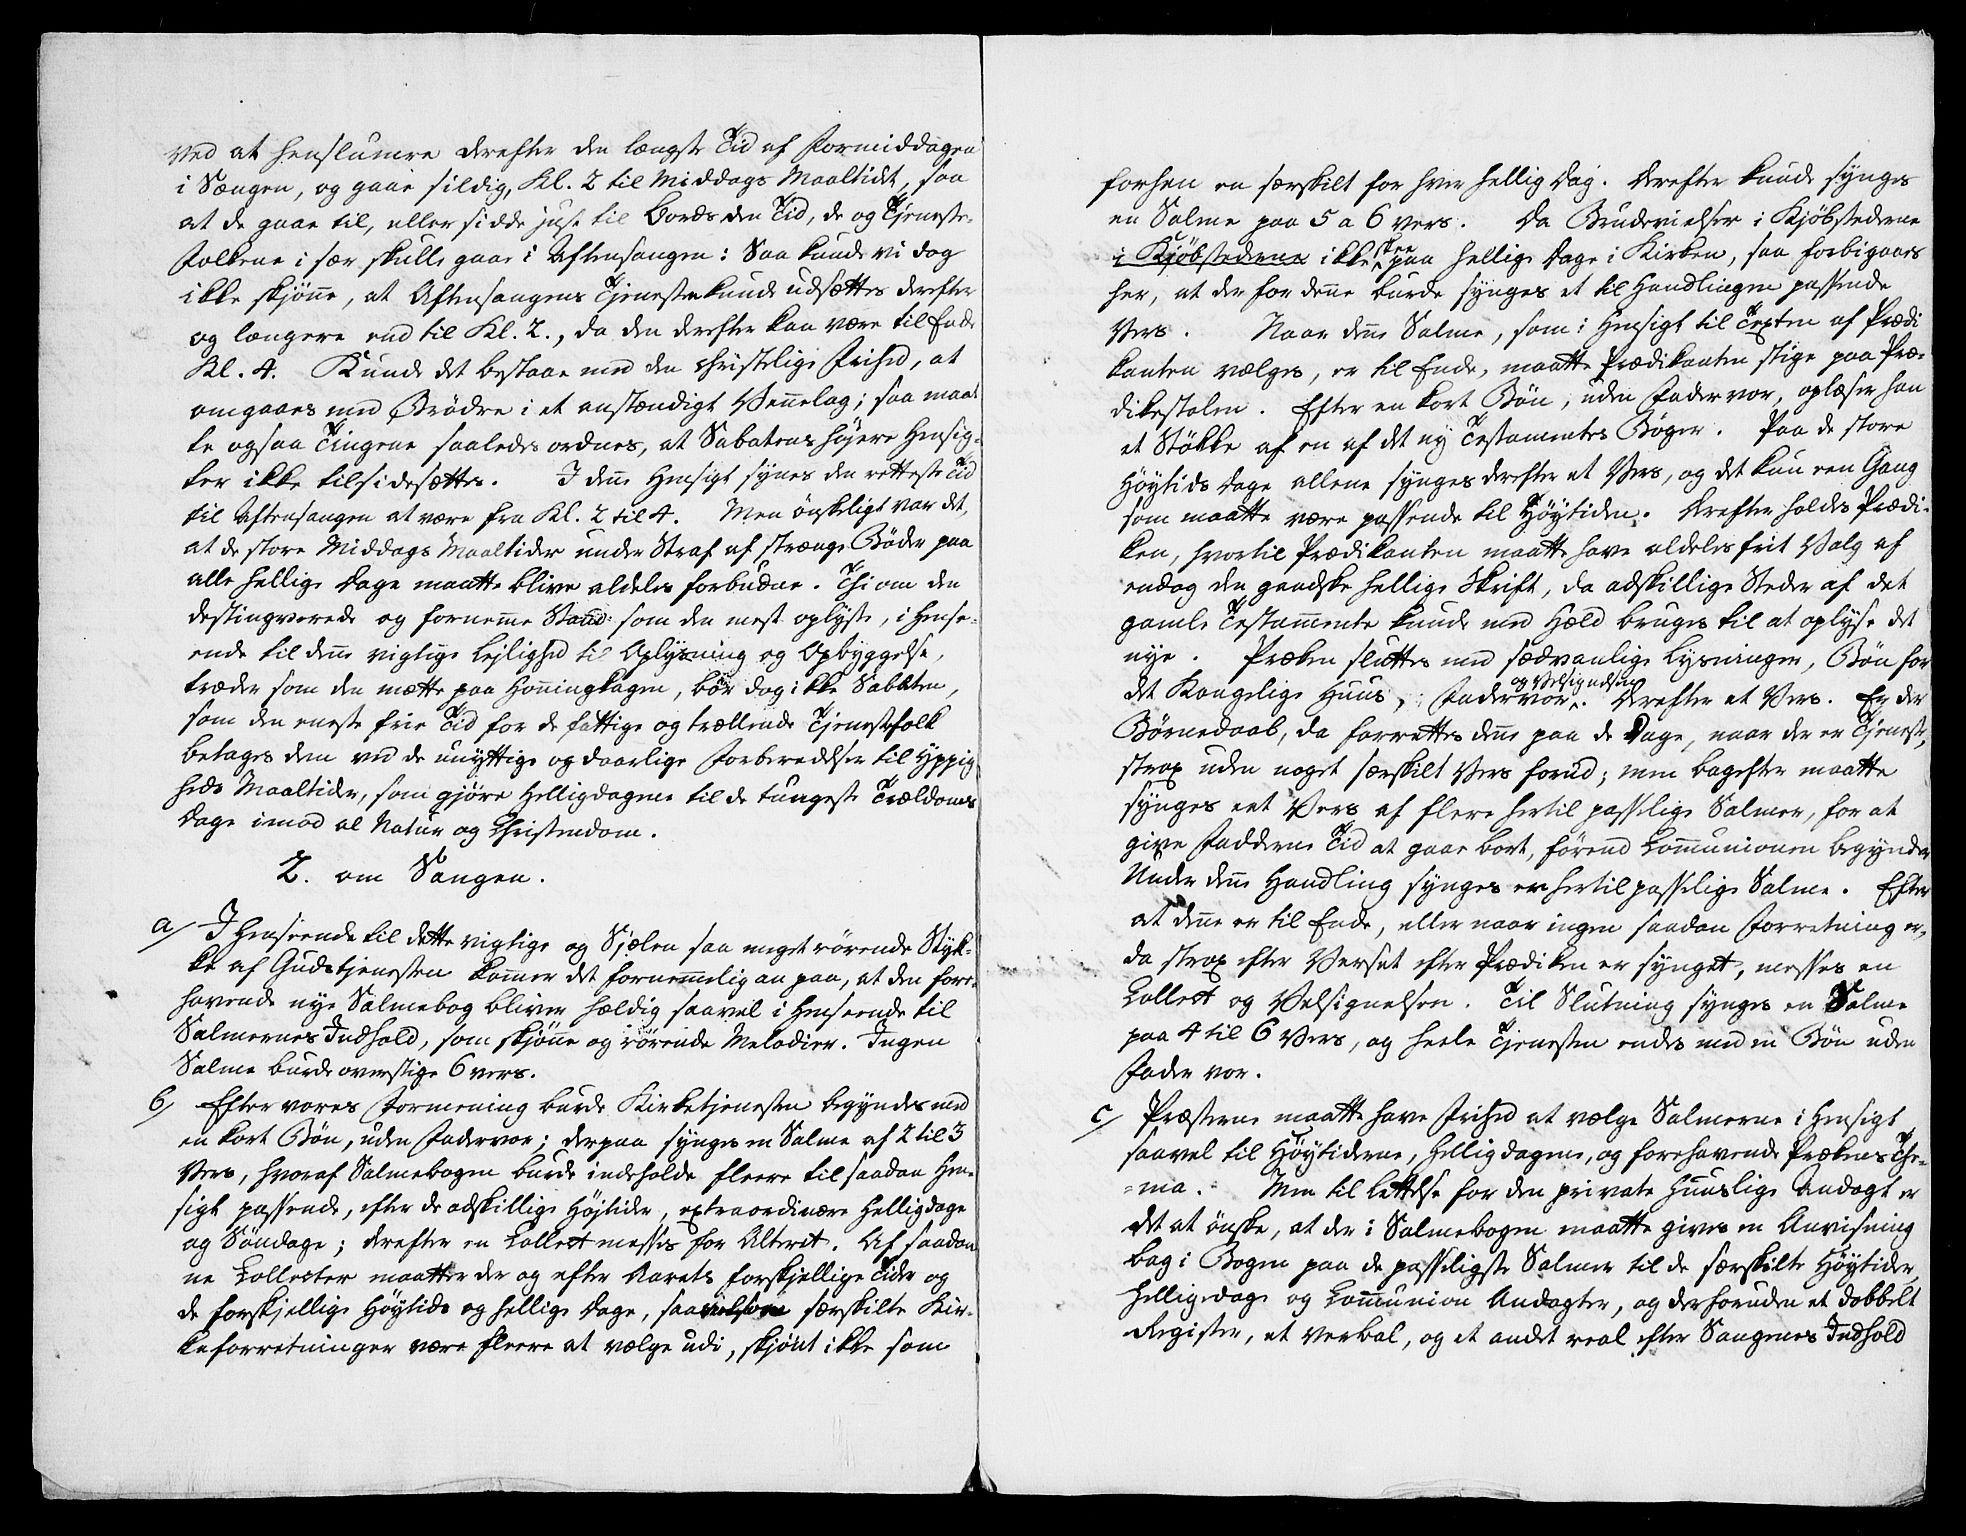 ved at henslumre derefter den længste Tid af Formiddagen
i Sængen, og gaae sildig, Kl. 2 til Middags Maaltidet, saa
at de gaae til, eller sidde just til Bords den Tid, de og Tjeneste-
Folkene i sær skulle gaae i Aftensangen: Saa kunde vi dog
ikke skjønne, at Aftensangens Tjeneste kunde udsættes derefter
og længere end til Kl. 2., da den derefter kan være til Ende
Kl. 4. Kunde det bestaae med den christelige Frihed, at
omgaaes med Brødre i et anstændigt Vennelag; saa maat
te ogsaa Tingene saaledes ordnes, at Sabatens højere Hensig-
ter ikke tilsidesættes. I denne Hensigt synes den retteste Tid
til Aftensangen at være fra Kl. 2 til 4. Men ønskeligt var det,
at de store Middags Maaltider under Straf af strænge Bøder paa
alle hellige Dage maatte blive aldeles forbudne. Thi om den
destingverede og fornemme Stand som den mest oplyste, i Hense-
ende til denne vigtige Lejlighed til Oplysning og Opbyggelse,
træder som den mætte paa Honningkagen, bør dog ikke Sabbaten,
som den eneste frie Tid for de fattige og trællende Tjenestefolk
betages dem ved de unyttige og daarlige Forberedelser til Yppig
heds Maaltider, som gjøre Helligdagene til de tungeste Trældoms
Dage imod al Natur og Christendom.
2. om Sangen.
a/ I Henseende til dette vigtige og Sjælen saa meget rørende Styk-
ke af Gudstjenesten kommer det fornemmelig an paa, at den fore-
havende nye Salmebog bliver heldig saavel i Henseende til
Salmernes Indhold, som skjønne og rørende Melodier. Ingen
Salme burde overstige 6 vers.
b/ Efter vores Formening burde Kirketjenesten begyndes med
en kort Bøn, uden Fadervor; derpaa synges en Salme af 2 til 3
Vers, hvoraf Salmebogen burde indeholde fleere til saadan Hen-
sigt passende, efter de adskillige Højtider, extraordinære Helligdage
og Søndage; derefter en Collect messes for Alteret. Af saadan
ne Collecter maatte der og efter Aarets forskjellige Tider og
de forskjellige Høytids og hellige Dage, saavelsom særskilte Kir-
keforretninger være fleere at vælge udi, skjønt ikke som
forhen en særskilt for hver hellig Dag. Derefter kunde synges
en Salme paa 5 a 6 vers. Da Brudevielser i Kjøbstederne
i Kjøbstederne ikke skee paa hellige Dage i Kirken, saa forbigaaes
her, at der for denne burde synges et til Handlingen passende
Vers. Naar denne Salme, som i Hensigt til Texten af Prædi
kanten vælges, er til Ende, maatte Prædikanten stige paa Præ-
dikestolen. Efter en kort Bøn, uden Fader vor, oplæser han
et Støkke af en af det ny Testamentes Bøger. Paa de store
Høytids Dage allene synges derefter et Vers, og det kun een Gang
som maatte være passende til Høytiden. Derefter holdes Prædi-
ken, hvortil Prædikanten maatte have aldeles frit Valg af
endog den gandske hellige Skrift, da adskillige Steder af det
gamle Testamente kunde med Held bruges til at oplyse det
nye. Præken sluttes med sædvanlige Lysninger, Bøn for
det Kongelige Huus, Fadervor og Velsignelsen. Derefter et Vers. Er der
Børnedaab, da forrettes denne paa de Dage, naar der er Tjeneste,
strax uden noget særskilt Vers forud; men bagefter maatte
synges eet Vers af flere hertil passelige Salmer, for at
give Fadderne Tid at gaae bort, førend Communionen begynder
Under denne Handling synges en hertil passelige Salme. Efter
at denne er til Ende, eller naar ingen saadan Forretning er,
da strax efter Verset efter Prædiken er synget, messes en
Collect og Velsignelsen. Til Slutning synges en Salme
paa 4 til 6 Vers, og heele Tjenesten endes med en Bøn uden
Fader vor.
c/ Præsterne maatte have Frihed at vælge Salmerne i Hensigt
saavel til Høytiderne, Helligdagene, og forehavende Prækenes The-
=ma. Men til Lettelse for den private Huuslige Andagt er
det at ønske, at der i Salmebogen maatte gives en Anvisning
bag i Bogen paa de passeligste Salmer til de særskilte Høytider,
Helligedage og Communion Andagter, og derforuden et dobbelt
Register, et verbal, og et andet real efter Sangenes Indhold